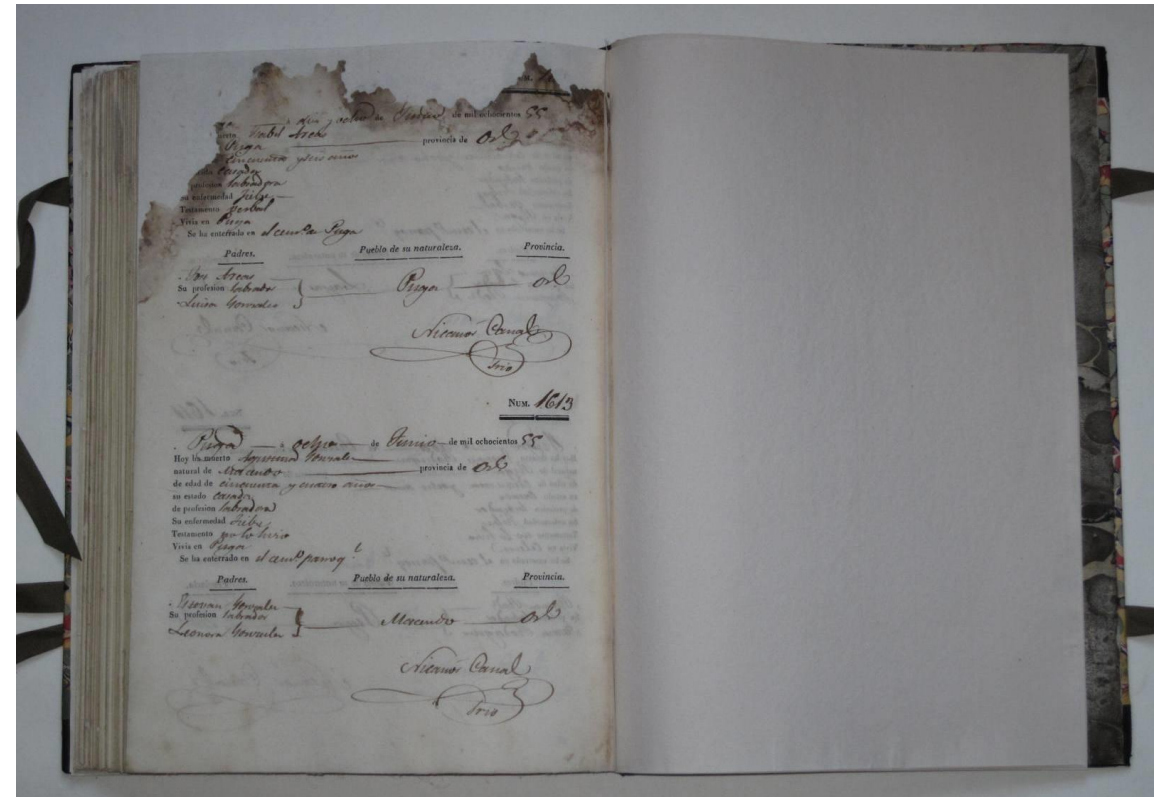 a diez y ocho de Junio de mil ochocientos 55
muerto Isabel Arcos
Puga provincia de Orē
cincuenta y seis años
casada
profesion labradora
su enfermedad fiebre
Testamento verbal
Vivia en Puga
Se ha enterrado en el cemº de Puga
Padres. Pueblo de su naturaleza. Provincia.
Arcos
Su profesion labrador Puga Orē
Luisa Gonzalez
Nicanor Canal
Trio
NUM. 1613
Puga a ocho de Junio de mil ochocientos 55
Hoy ha muerto Gonzalez
natural de Macendo provincia de Orē
de edad de cincuenta y cuatro años
su estado casada
de profesion labradora
Su enfermedad fiebre
Testamento no lo hizo
Vivia en Puga
Se ha enterrado en el cemº parroq.l
Padres. Pueblo de su naturaleza. Provincia.
Estevan Gonzalez
Su profesion labrador Macendo Orē
Leonora Gonzalez
Nicanor Canal
Trio